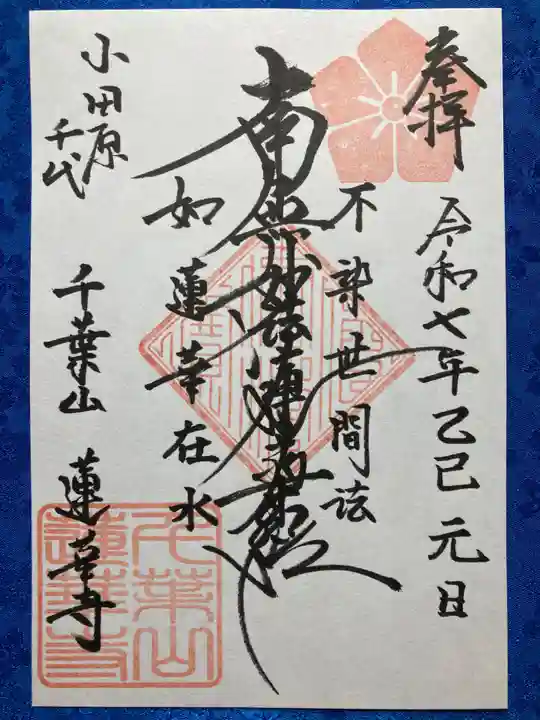 奉拝
令和七年乙巳元日
不染世間法
南無妙法蓮華経
如蓮華在水
小田原
千代
千葉山 蓮華寺
千葉山
蓮華寺